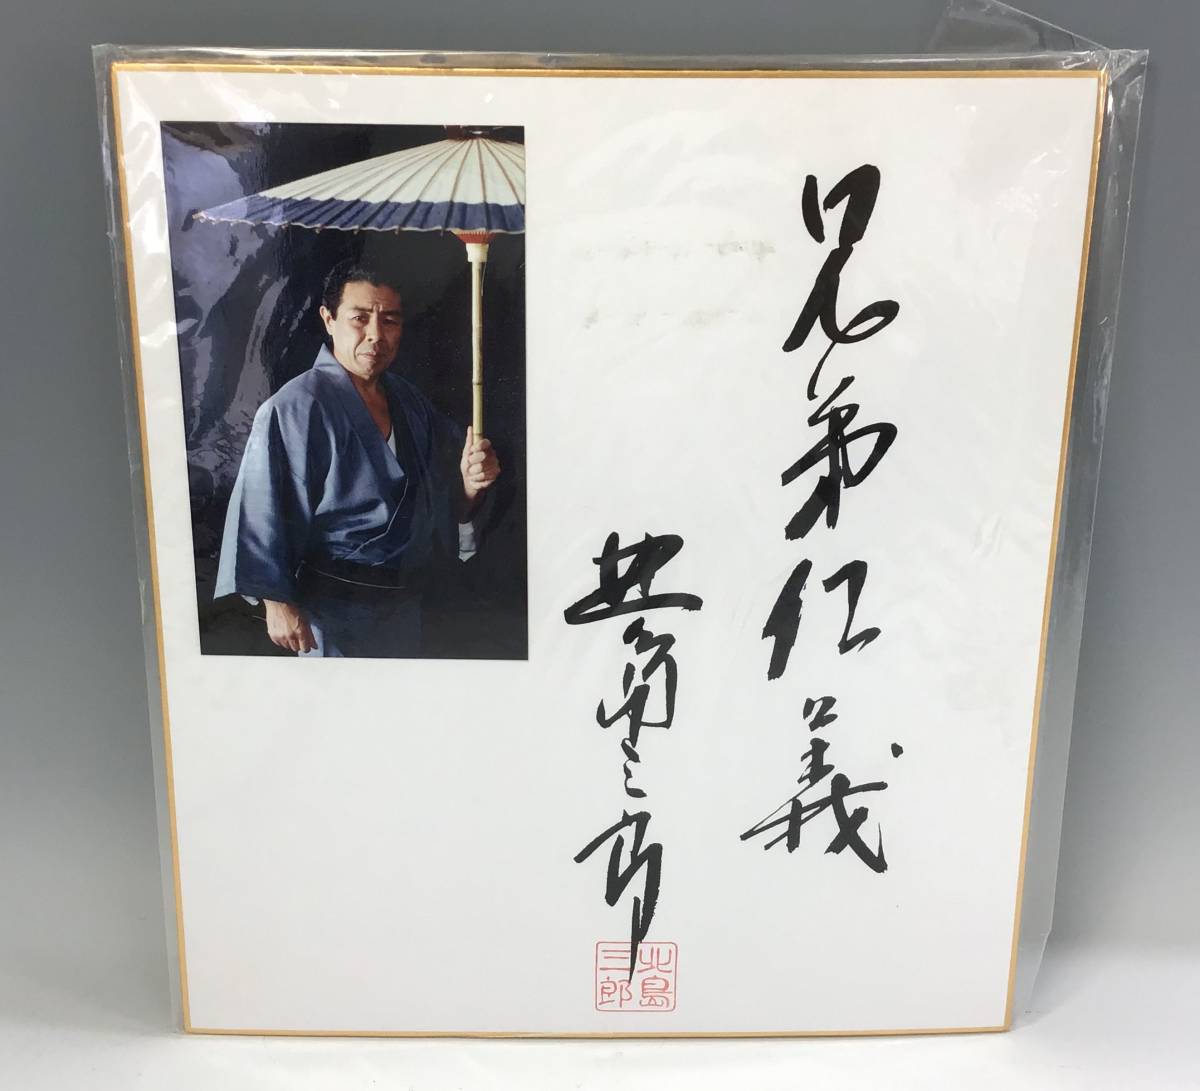 兄弟仁義
北島三郎
北島
三郎